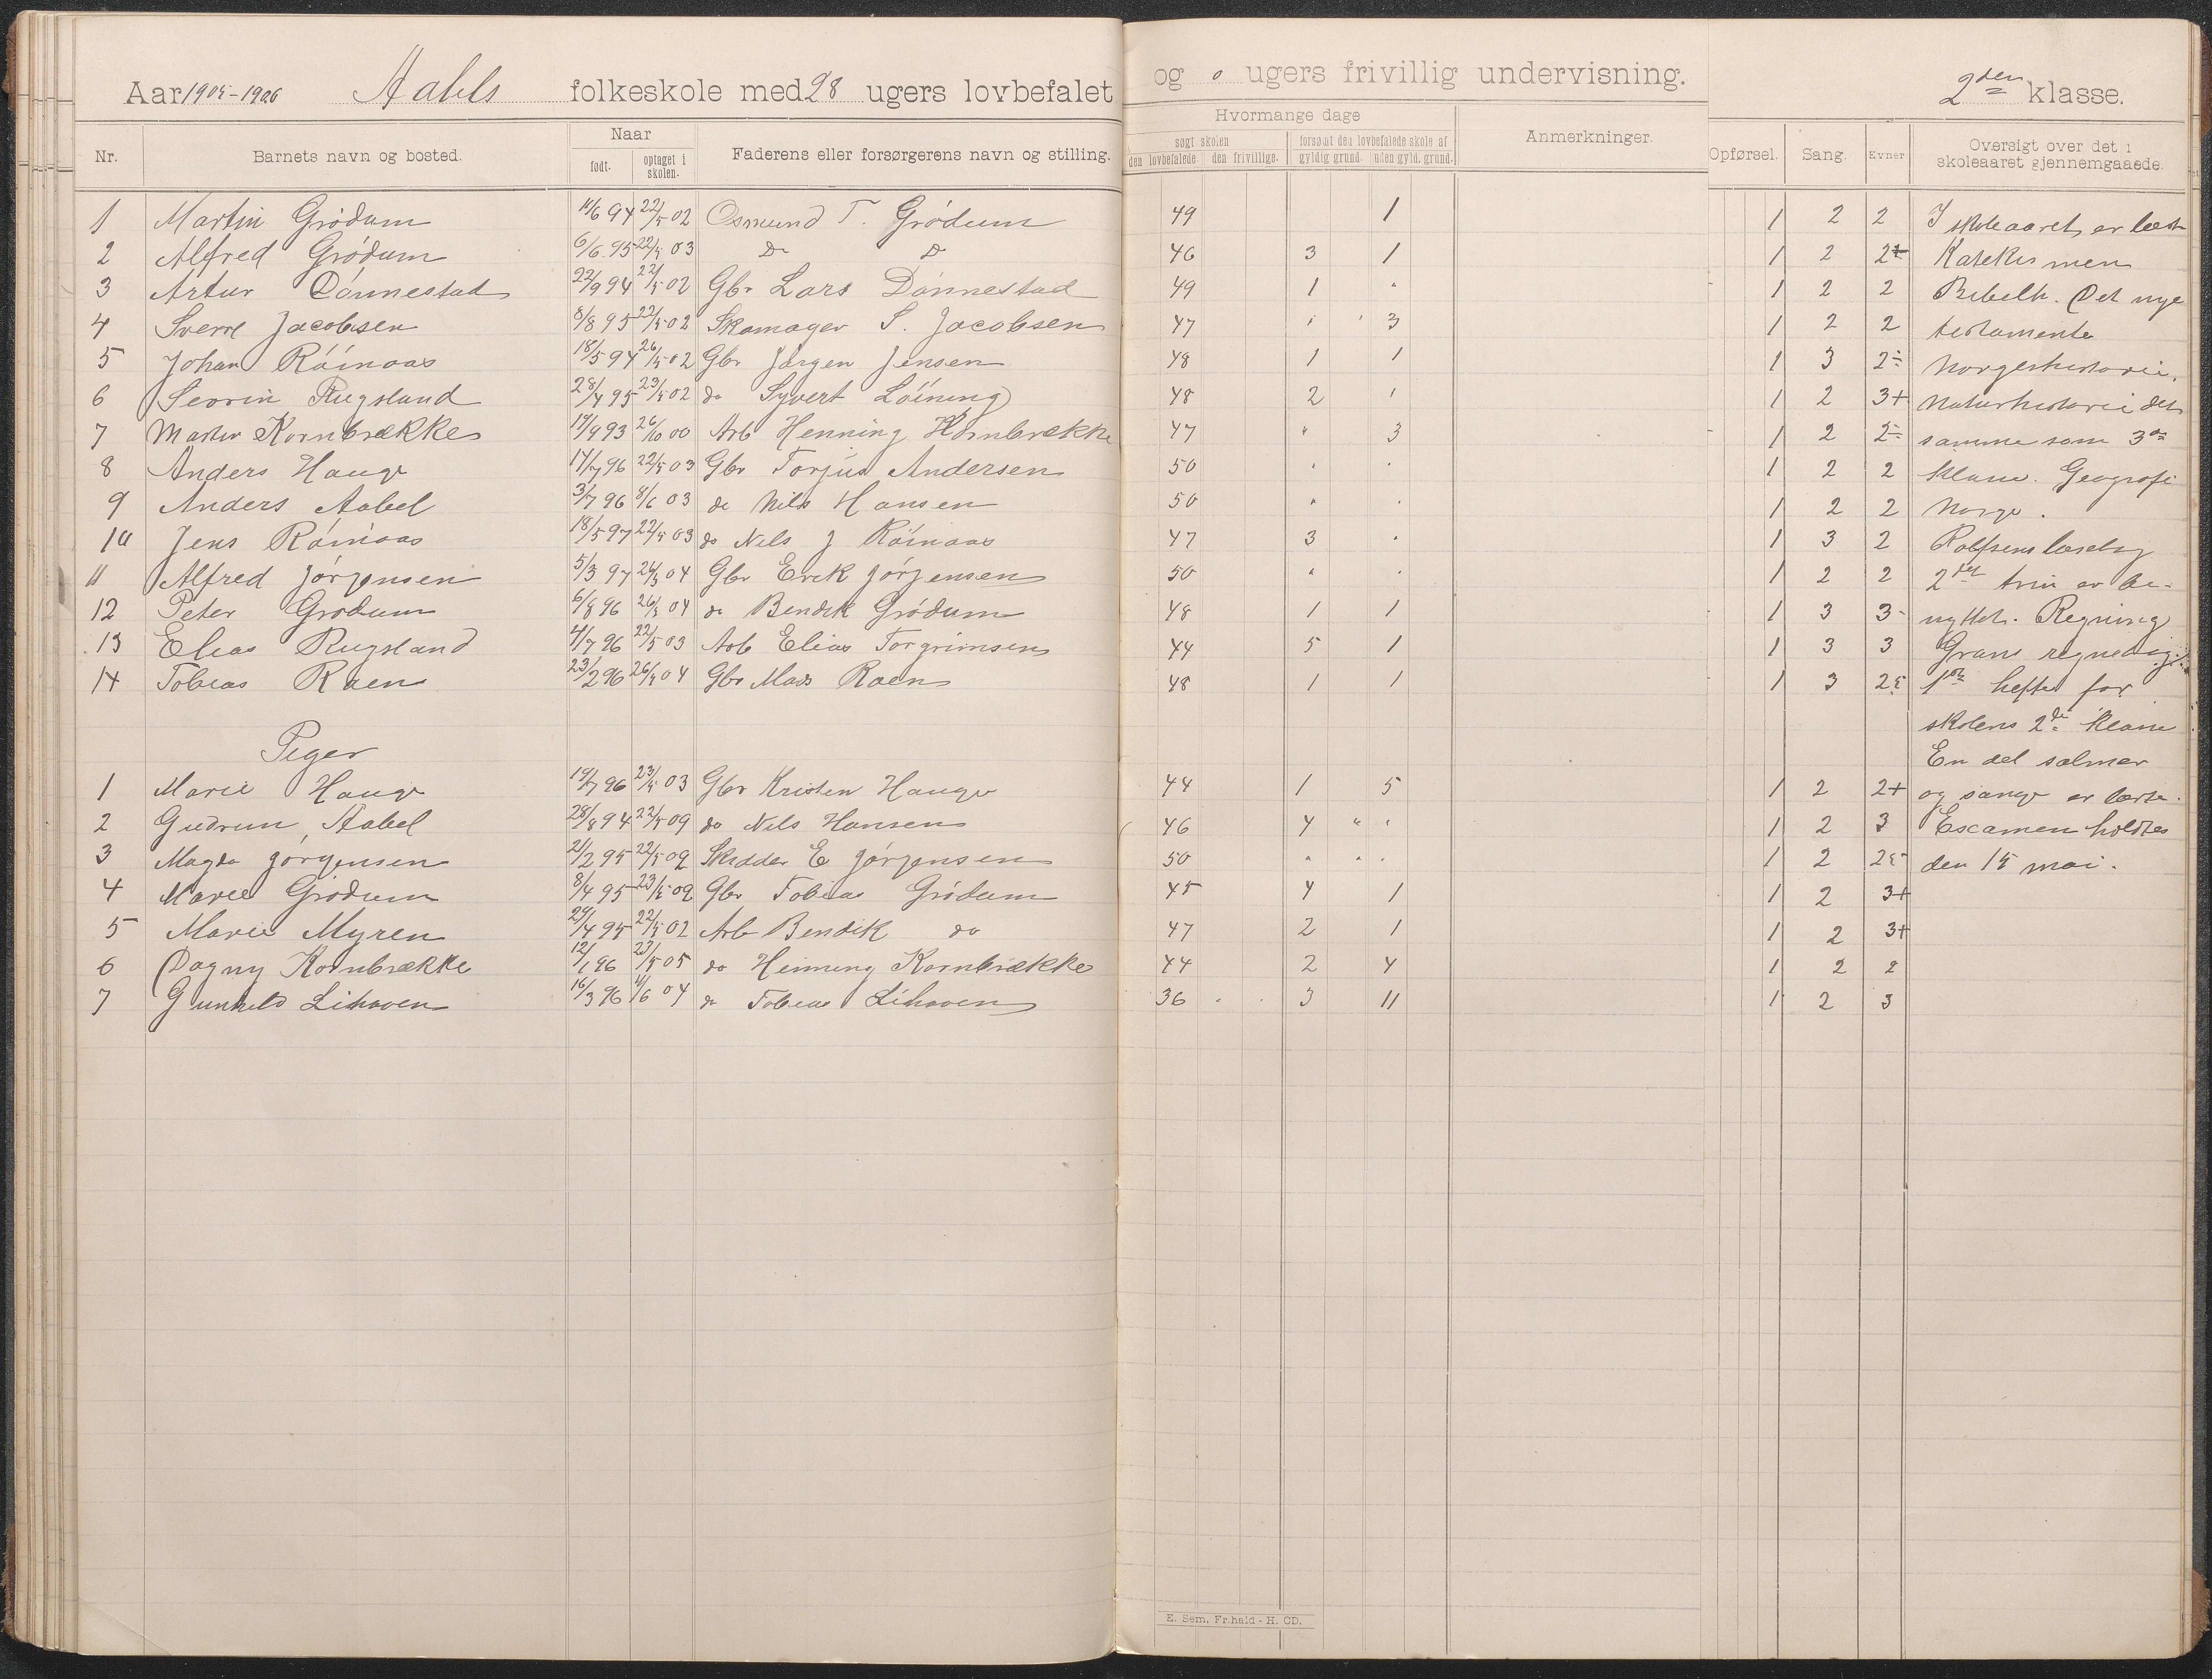 Aar 1905-1906 Aabels folkeskole med 28 ugers lovbefalet og 0 ugers frivillig undervisning. 2den klasse.
Nr. Barnets navn og bosted. Naar født. optaget i skolen. Faderens eller forsørgerens navn og stilling. Hvormange dage søgt skolen den lovbefalede den frivillige. forsømt den lovbefalede skole af gyldig grund. uden gyld. grund. Anmerkninger. Opførsel. Sang. Evner Oversigt over det i skoleaaret gjennemgaaede.
1 Martin Grödum 11/6 94 22/5 02 Osmund T. Grödum 49 1 1 2 2 I skoleaaret er læst
2 Alfred Grödum 6/6 95 22/5 03 Do Do 46 3 1 1 2 2+ Katekismen
3 Artur Dönnestad 22/9 94 22/5 02 Gbr Lars Dönnestad 49 1 " 1 2 2 Bibelh. Det nye
4 Sverre Jacobsen 8/8 95 22/5 02 Skomager S. Jacobsen 47 " 3 1 2 2 testamente
5 Johan Röinaas 18/5 94 26/5 02 Gbr Jörgen Jensen 48 1 1 1 3 2- Norgeshistorie.
6 Severin Rugsland 28/4 95 23/5 02 do Syvert Löining 48 2 1 1 2 3+ Naturhistorie det
7 Martin Kornbrække 14/9 93 26/10 00 Arb Henning Kornbrække 47 " 3 1 2 2- samme som 3die
8 Anders Hauge 14/7 96 22/5 03 Gbr Torjus Andersen 50 " " 1 2 2 klasse. Geografi
9 Anders Aabel 3/7 96 8/6 03 do Nils Hansen 50 " " 1 2 2 Norge.
10 Jens Röinaas 18/5 97 22/5 03 do Nels J Röinaas 47 3 " 1 3 2 Rolfsens læsebog
11 Alfred Jörgensen 5/3 97 26/5 04 Gbr Erik Jörgensen 50 " " 1 2 2 2det trin er be-
12 Peter Grödum 6/8 96 26/5 04 do Bendik Grödum 48 1 1 1 3 3- nyttet. Regning
13 Elias Rugsland 4/7 96 22/5 03 Arb Elias Torgrimsen 44 5 1 1 3 3 Grans regnebog.
14 Tobias Raen 23/2 96 26/5 04 Gbr Mads Raen 48 1 1 1 3 2 1ste hefte for
skolens 2den klasse
Piger En del salmer
1 Marie Hauge 19/7 96 23/5 03 Gbr Kristen Hauge 44 1 5 1 2 2+ og sange er lærte.
2 Gudrun Aabel 28/8 94 22/5 02 do Nils Hansen 46 4 " " 1 2 3 Escamen holdtes
3 Magda Jörgensen 21/2 95 22/5 02 Skredder E Jörgensen 50 " " " 1 2 2 den 15 mai.
4 Marie Grödum 8/4 95 23/5 02 Gbr Tobias Grödum 45 4 1 1 2 3+
5 Marie Myren 29/4 95 22/5 02 Arb Bendik do 47 2 1 1 2 3+
6 Dagny Kornbrække 12/1 96 23/5 05 do Henning Kornbrække 44 2 4 1 2 2
7 Gunhild Lihaven 16/3 96 11/6 04 do Tobias Lihaven 36 3 11 1 2 3
E. Sem, Fr.hald - H. CD.